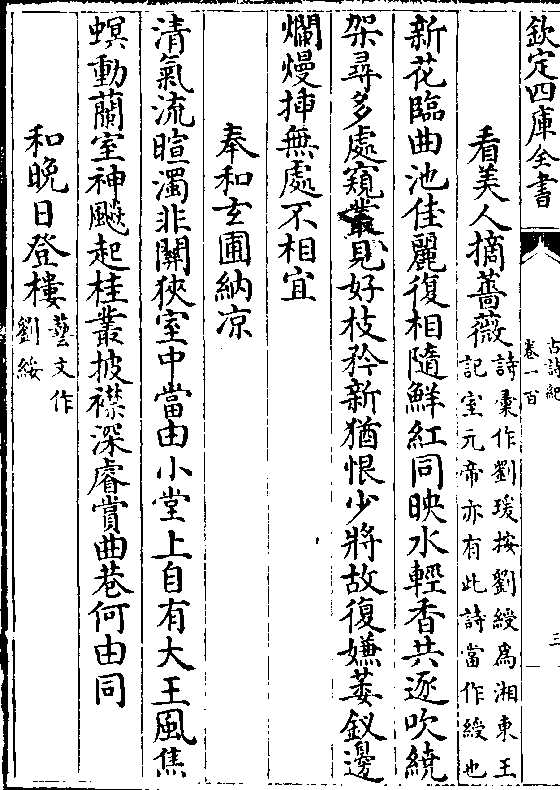 欽定四庫全書
古詩紀
卷一百
三
看美人摘薔薇
詩彙作劉瑗按劉綬為湘東王
記室元帝亦有此詩當作綬也
新花臨曲池佳麗復相隨鮮紅同映水輕香共逐吹繞
架尋多處窺叢見好枝矜新猶恨少將故復嫌萎釵邊
爛熳揷無處不相宜
奉和玄圃納凉
清氣流暄濁非關狹室中當由小堂上自有大王風焦
螟動蘭室神飈起桂叢披襟深睿賞曲巷何由同
和晚日登樓
藝文作
劉綏